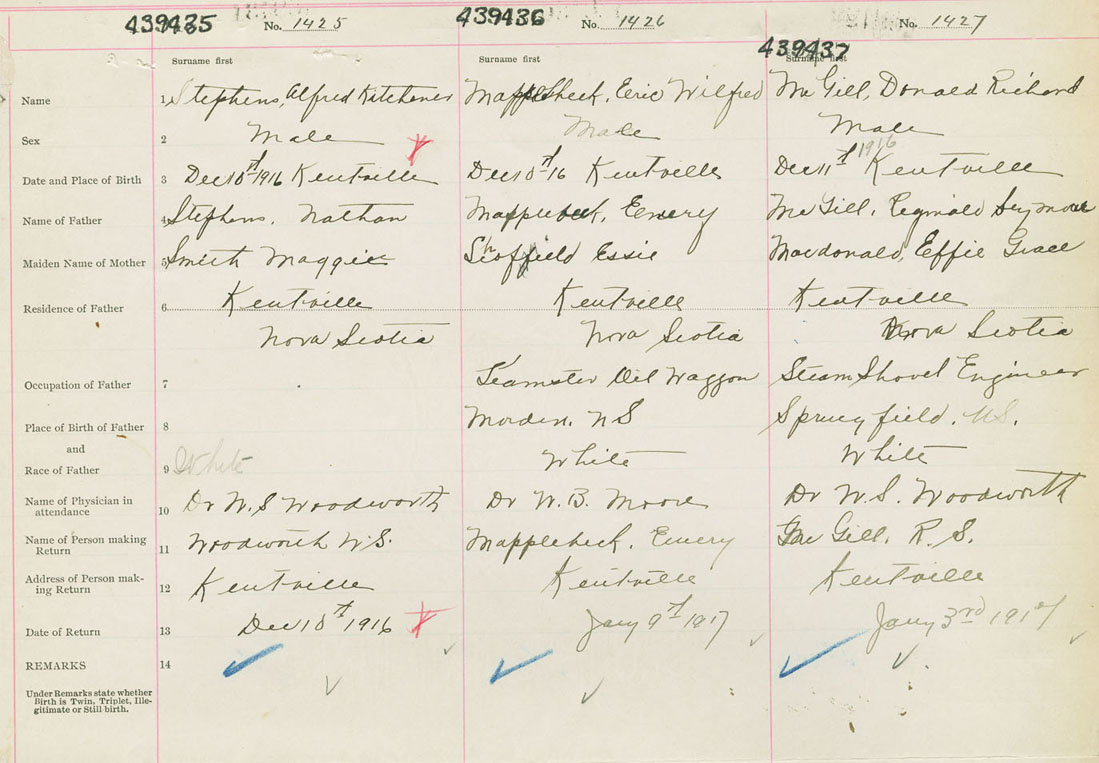 439435 No. 1425 439436 No. 1426 439437 No. 1427
Surname first Surname first Surname first
Name 1 Stephens, Alfred Kitchener Mapplebeck, Eric Wilfred Mc Gill, Donald Richard
Sex 2 Male Male Male
Date and Place of Birth 3 Dec 10th 1916 Kentville Dec 10th 16 Kentville Dec 11th 1916 Kentville
Name of Father 4 Stephens, Nathan Mapplebeck, Emery Mc Gill, Reginald Seymour
Maiden Name of Mother 5 Smith Maggie Schoffield Essie Macdonald, Effie Grace
Residence of Father 6 Kentville Kentville Kentville
Nova Scotia Nova Scotia Nova Scotia
Occupation of Father 7 Teamster Oil Waggon Steam Shovel Engineer
Place of Birth of Father 8 Morden, NS Spruyfield. NS.
and
Race of Father 9 White White White
Name of Physician in
attendance 10 Dr W. S Woodworth Dr W. B. Moore Dr W. S. Woodworth
Name of Person making
Return 11 Woodworth W S. Mapplebeck, Emery Mc Gill, R. S.
Address of Person mak-
ing Return 12 Kentville Kentville Kentville
Date of Return 13 Dec 10th 1916 Jany 9th 1917 Jany 3rd 1917
REMARKS 14
Under Remarks state whether
Birth is Twin, Triplet, Ille-
gitimate or Still-birth.